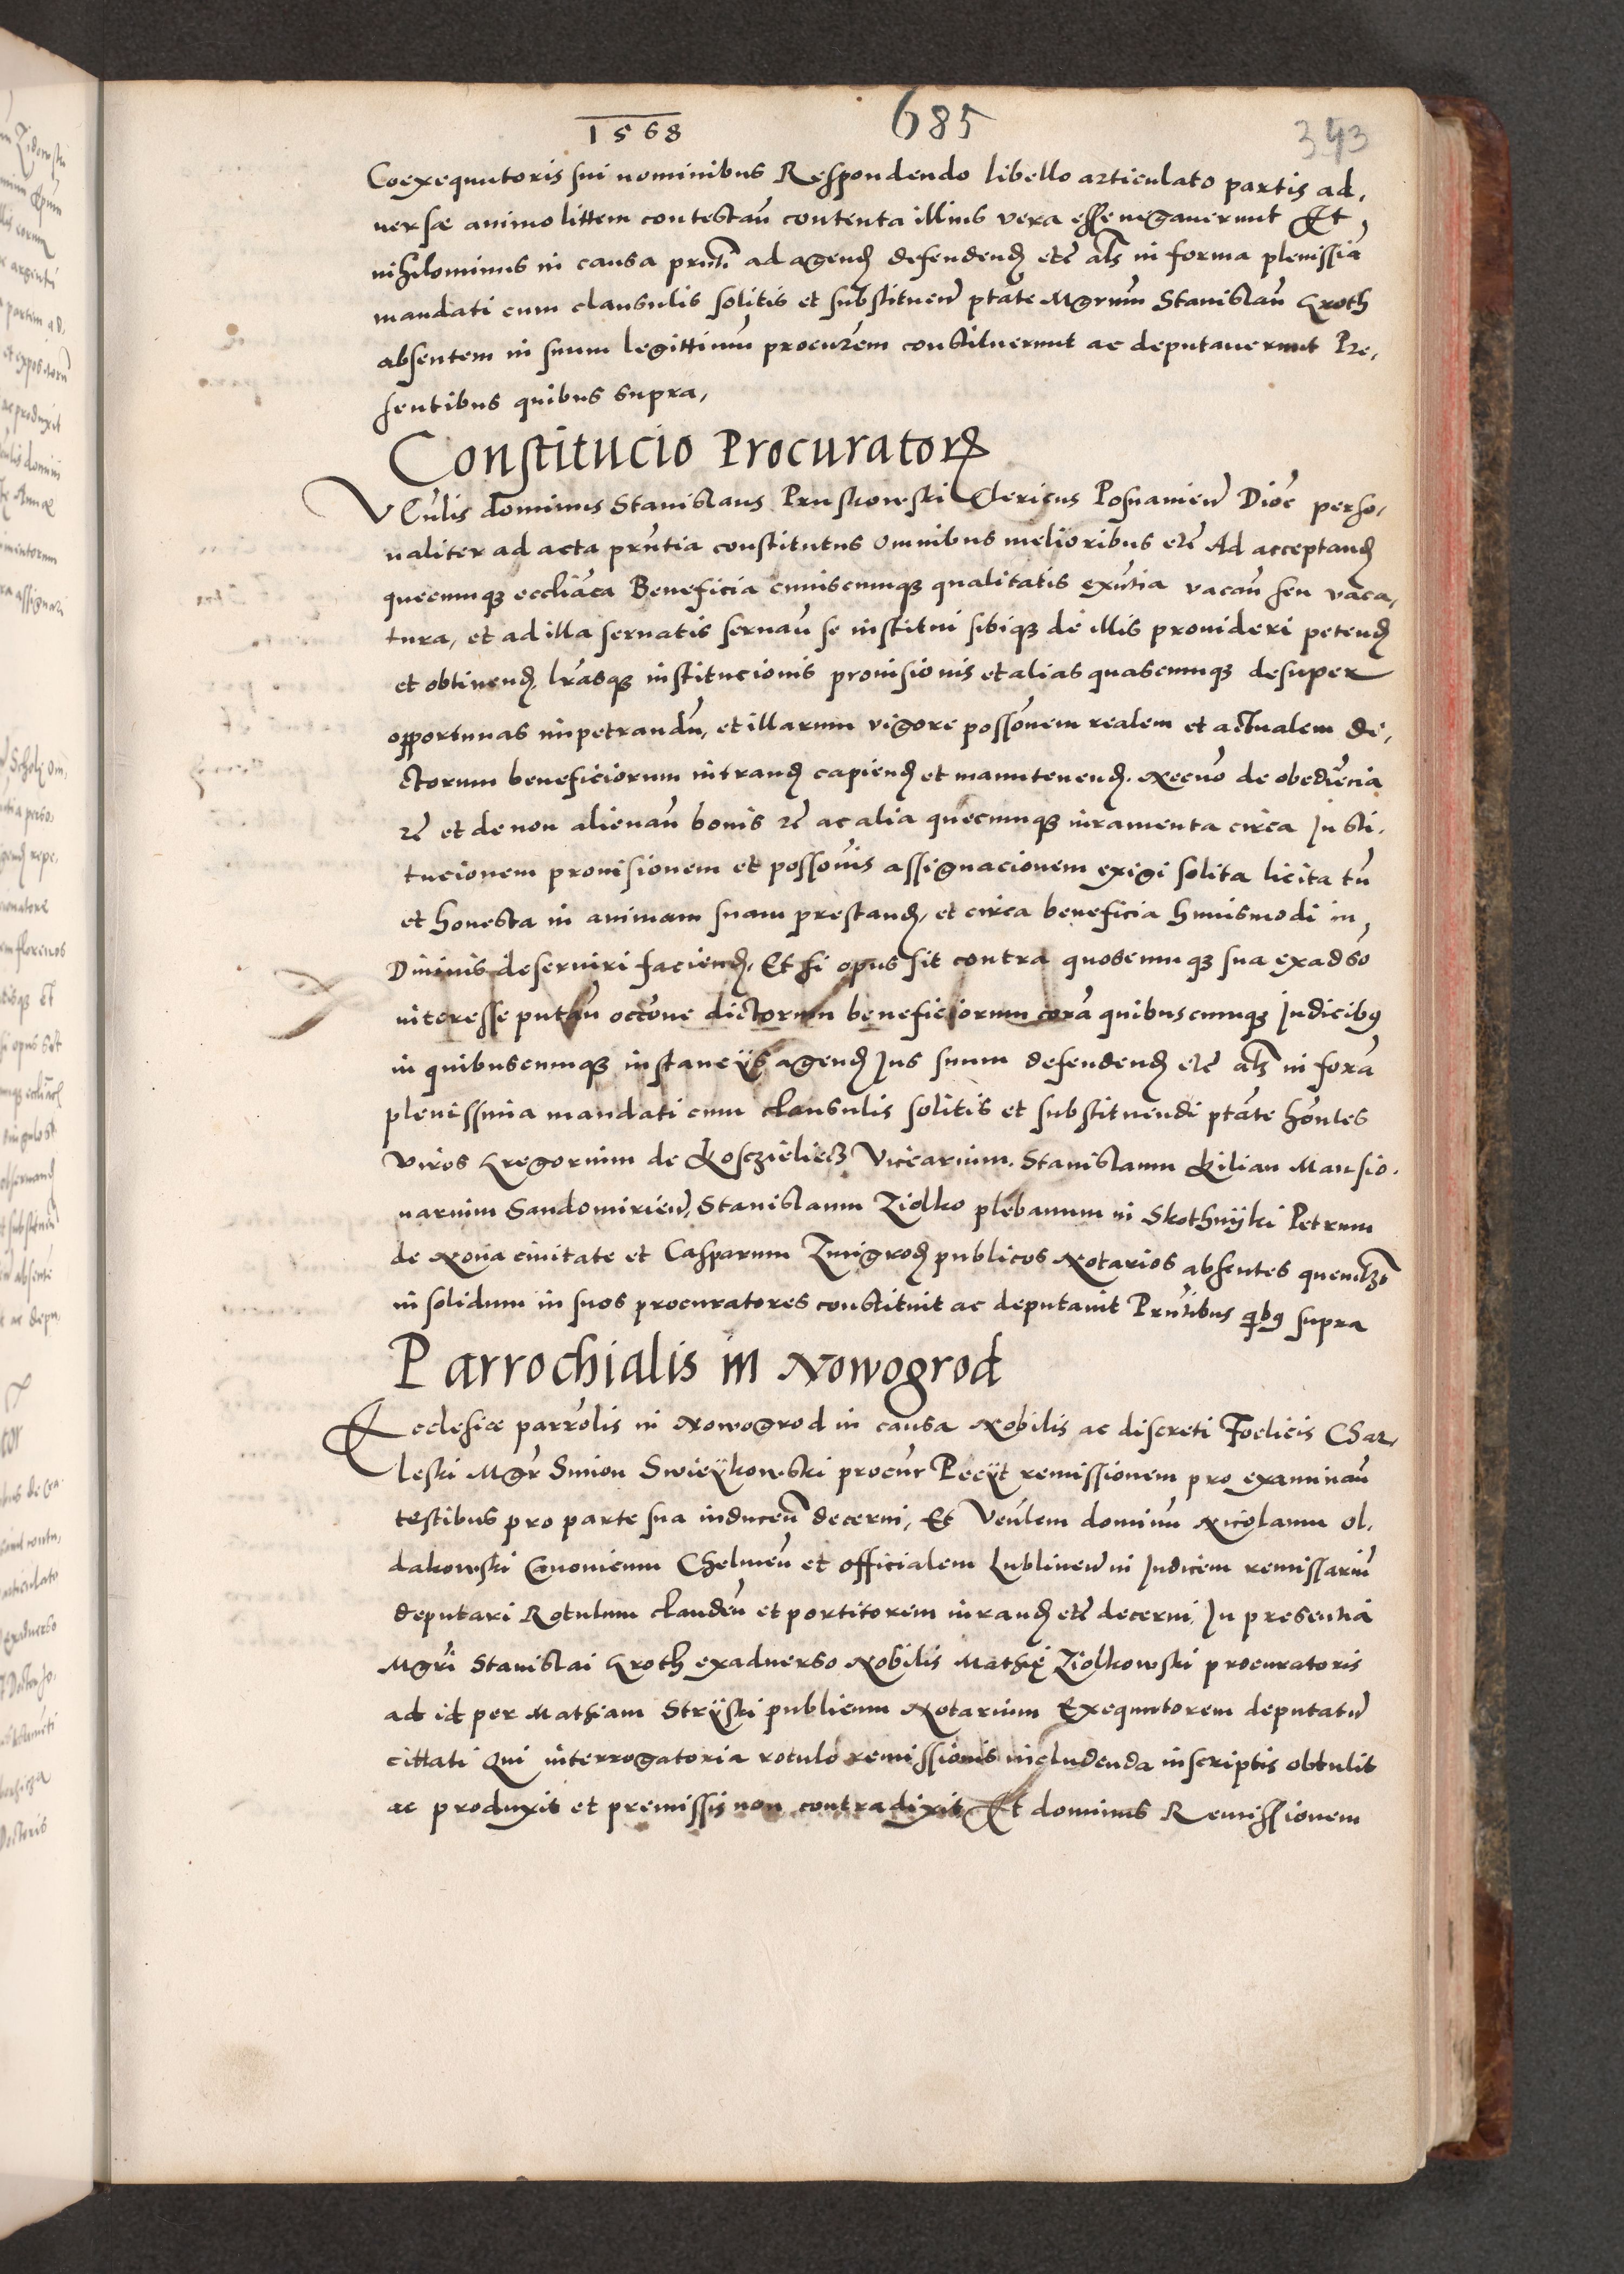 1568 685 343
Coexequutoris sui nominibus Respondendo libello articulato partis ad,
versæ animo littem contestañ contenta illius vera esse negaverunt Et
nihilominus in causa pñti ad agend defendend etc̃ als̃ in forma plenissiã
mandati cum clausulis solitis et substituen̄ ptãte Mgrum̃ Stanislaũ Groth
absentem in suum legittimũ procur̃em constituerunt ac deputaverunt Pre,
sentibus quibus supra,
Constitucio Procuratorꝝ
Vẽnlis dominus Stanislaus Pruskowski Clericus Posnanien̄ Dioc̃ perso,
naliter ad acta pñtia constitutus omnibus melioribus etc̃ Ad acceptand
quecumqȝ eccliãca Beneficia cuiuscumqȝ qualitatis exñtia vacañ seu vaca,
tura, et ad illa servatis servañ se institui sibiqȝ de illis provideri petend
et obtinend, lr̃asqȝ institucionis provisionis et alias quascumqȝ desuper
opportunas impetrandũ, et illarum vigore possõnem realem et actualem di,
ctorum beneficiorum intrand capiend et manutenend. execuõ de obediẽcia
rẽ et de non alienañ bonis rẽ ac alia quecumqȝ iuramenta circa Insti,
tucionem provisionem et possõnis assignacionem exigi solita licita tñ
et honesta in animam suam prestand, et circa beneficia huiusmodi in
Divinis deserviri faciend, Et si opus sit contra quoscumqȝ sua exadso
interesse putañ occõne dictorum beneficiorum corã quibuscumqȝ Iudicibꝰ
in quibuscumqȝ instancÿs agend Ius suum defendend etc̃ als̃ in forã
plenissima mandati cum clausulis solitis et substituendi ptãte hoñles
viros Gregorium de Kosczieliecz Vicearium. Stanislaum Kilian Mansio.
narium Sandomirien̄, Stanislaum Ziolko plebanum in Skothnÿki Petrum
de Nova civitate et Casparum Zmigrod publicos Notarios absentes quemlȝt
in solidum in suos procuratores constituit ac deputavit Pñtibus qibꝰ supra
Parrochialis in Nowogrod
Ecclesiæ parrõlis in Nowogrod in causa Nobilis ac discreti Foelicis Char,
leski Mgr̃ Simon Swieÿkowski procur̃ Peciit remissionem pro examinañ
testibus pro parte sua induceñ decerni, Et Veñlem dominũ Nicolaum ol,
dakowski Canonicum Chelmeñ et officialem Lublinen̄ in Iudicem remissariũ
deputari Rotulum claudeñ et portitorem iurand etc̃ decerni, In presentia
Mgr̃i Stanislai Groth exadverso Nobilis Mathię Ziolkowski procuratoris
ad id per Mathiam Strÿski publicum Notarium Exequutorem deputatũ
cittati Qui interrogatoria rotulo remissionis includenda inscriptis obtulit
ac produxit et premissis non contradixit, Et dominus Remissionem